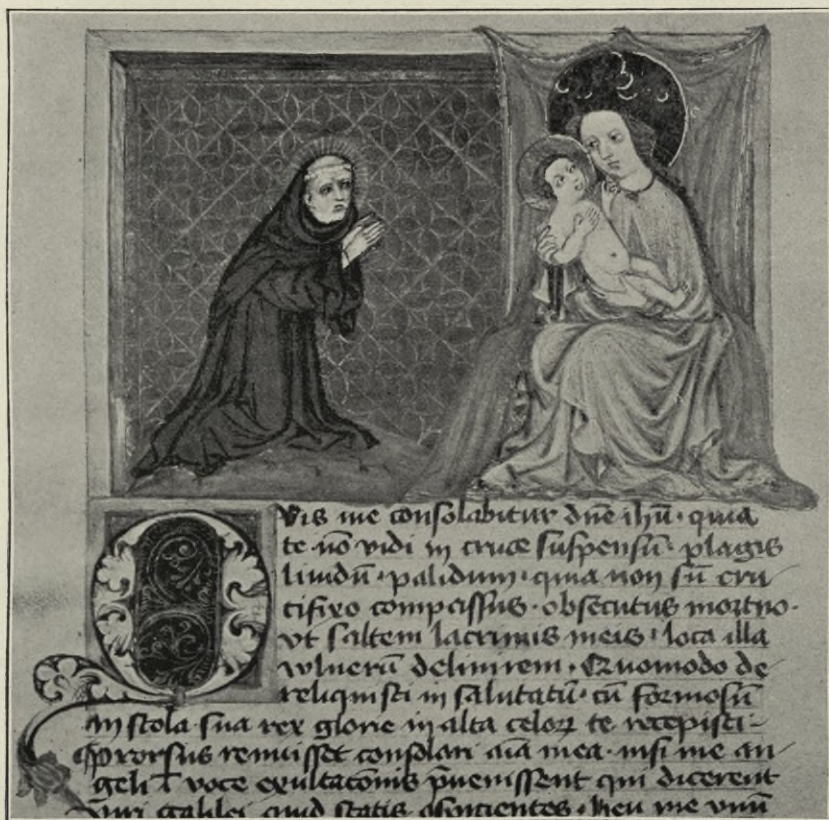 Quis me consolabitur dn̄e ihū · quia
te nō vidi in cruce suspensū · plagis
liuidū · palidum · quia non sū cru
cifixo compassus · obsecutus mortuo ·
vt saltem lacrimis meis · loca illa
vulnerū delinirem · Quomodo de
reliquisti in salutatū · cū formosū
in stola sua rex glorie in alta celoꝝ te recepisti
Prorsus renuisset consolari aīa mea · nisi me an
geli voce exultacōnis p̄uenissent qui dicerent
Viri galilei quid statis aspicientes · heu me